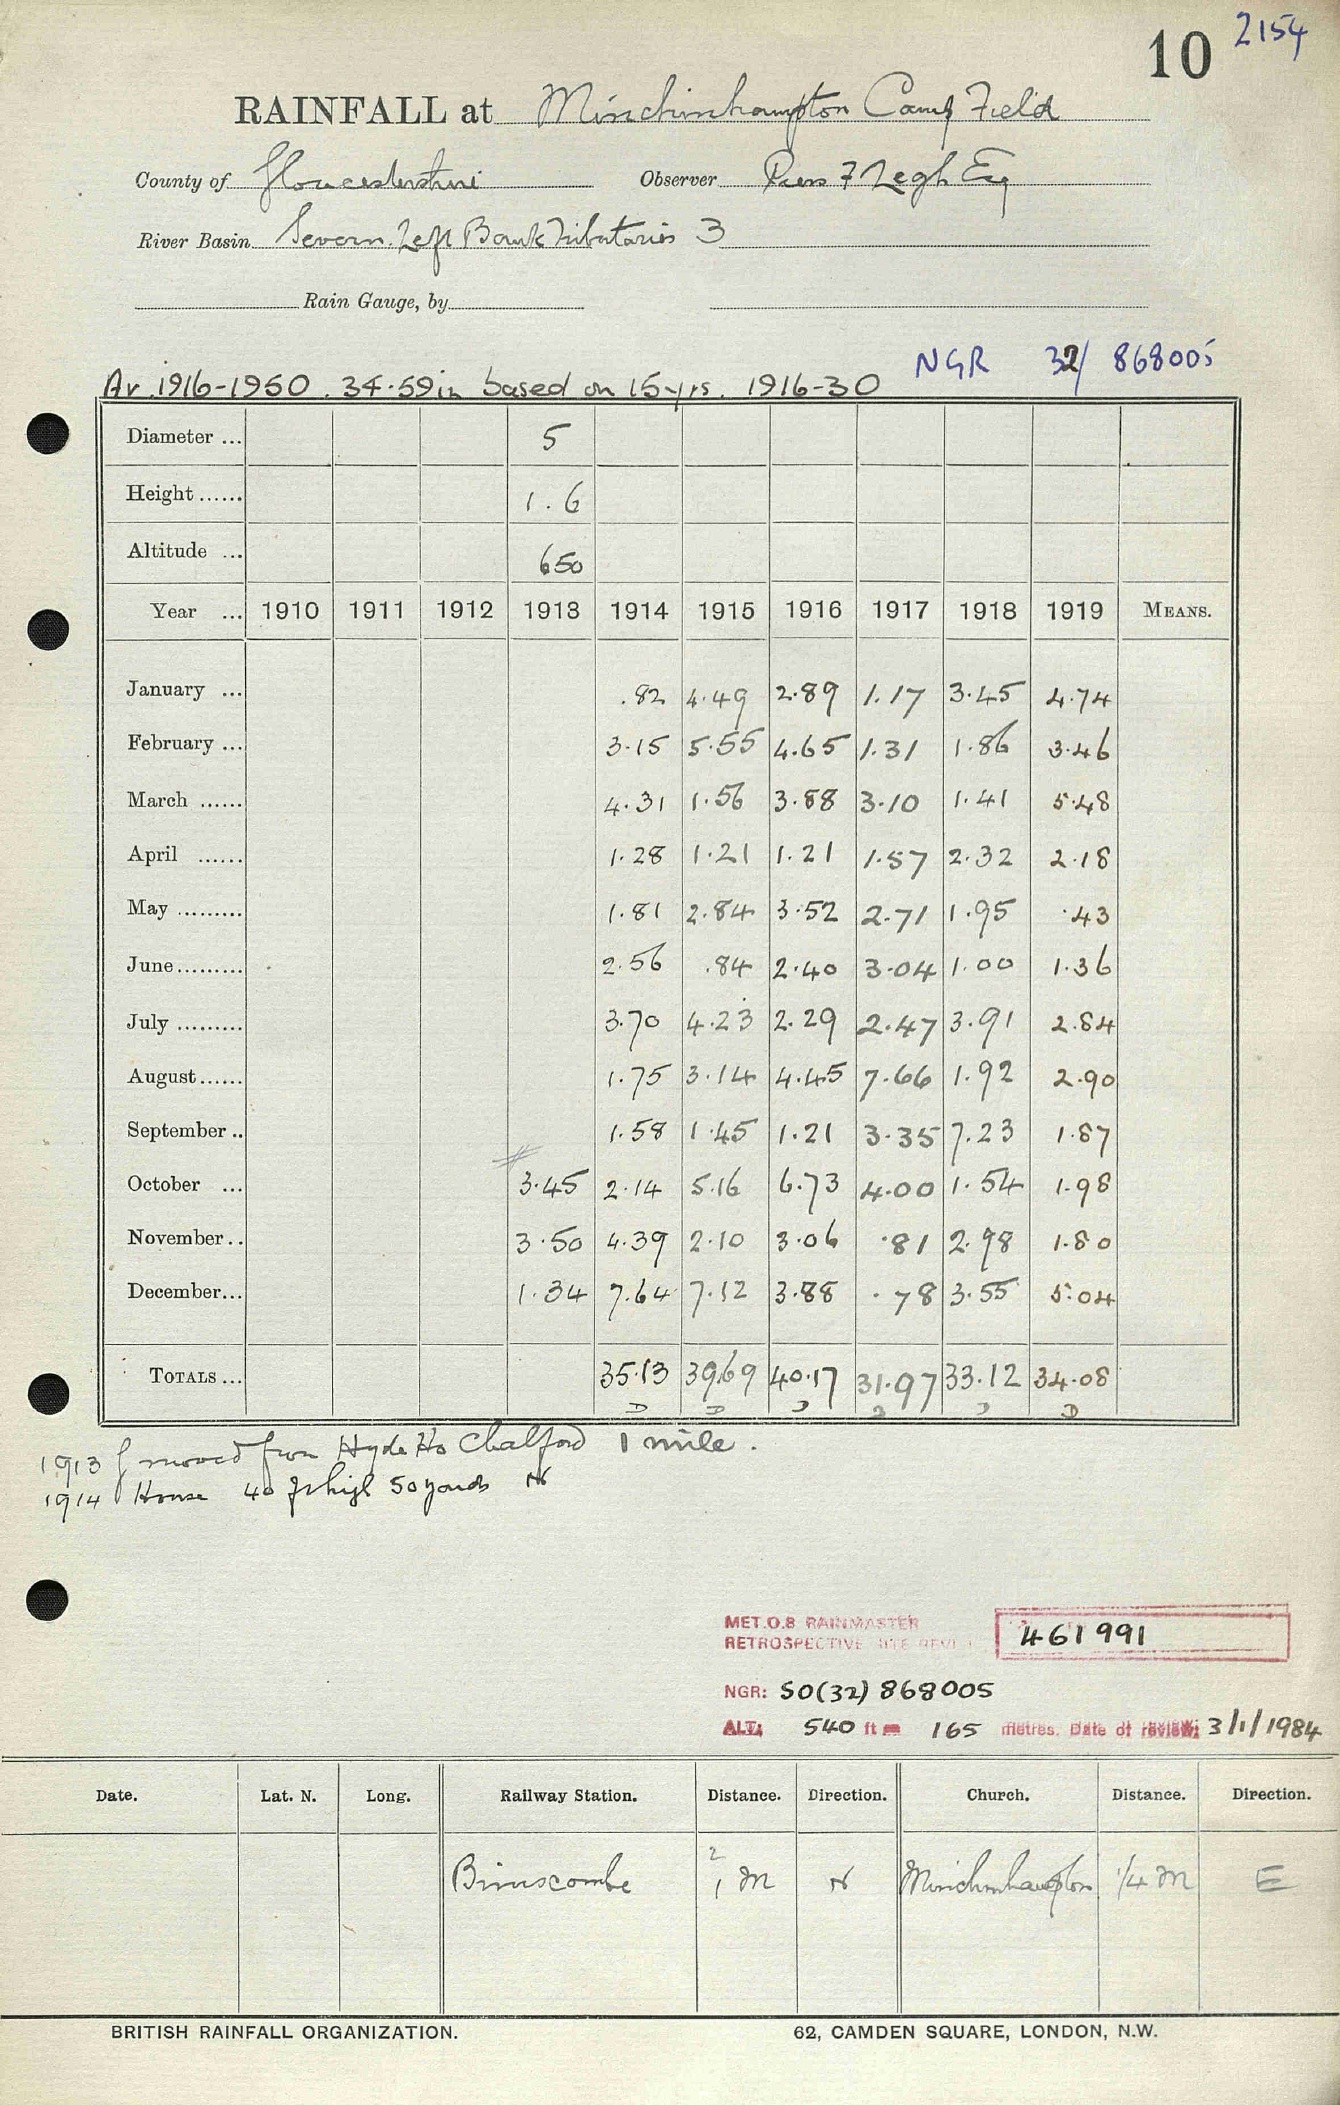 10 2154
RAINFALL at Minchinhampton Camp Field
County of Gloucestershire Observer Piers F Legh Esq
River Basin Severn. Left Bank Tributaries 3
Rain Gauge, by
NGR 32/ 868005
Av. 1916-1950. 34.59in based on 15yrs. 1916-30
Diameter ... 5
Height ...... 1.6
Altitude ... 650
Year ... 1910 1911 1912 1913 1914 1915 1916 1917 1918 1919 MEANS.
January ... .82 4.49 2.89 1.17 3.45 4.74
February ... 3.15 5.55 4.65 1.31 1.86 3.46
March ...... 4.31 1.56 3.88 3.10 1.41 5.48
April ...... 1.28 1.21 1.21 1.57 2.32 2.18
May ......... 1.81 2.84 3.52 2.71 1.95 .43
June ......... 2.56 .84 2.40 3.04 1.00 1.36
July ......... 3.70 4.23 2.29 2.47 3.91 2.84
August ...... 1.75 3.14 4.45 7.66 1.92 2.90
September .. 1.58 1.45 1.21 3.35 7.23 1.87
October ... 3.45 2.14 5.16 6.73 4.00 1.54 1.98
November .. 3.50 4.39 2.10 3.06 .81 2.98 1.80
December ... 1.34 7.64 7.12 3.88 .78 3.55 5.04
TOTALS ... 35.13 39.69 40.17 31.97 33.12 34.08
D D D D D D
1913 moved from Hyde Ho Chalford 1 mile.
1914 House 40 ft high 50 yards N
MET.O.8 RAINMASTER
RETROSPECTIVE SITE REVIEW 461991
NGR: SO(32) 868005
ALT: 540 ft 165 metres. Date of review: 3/1/1984
Date. Lat. N. Long. Railway Station. Distance. Direction. Church. Distance. Direction.
Brimscombe 1 2 M N Minchinhampton 1/4 M E
BRITISH RAINFALL ORGANIZATION. 62, CAMDEN SQUARE, LONDON, N.W.